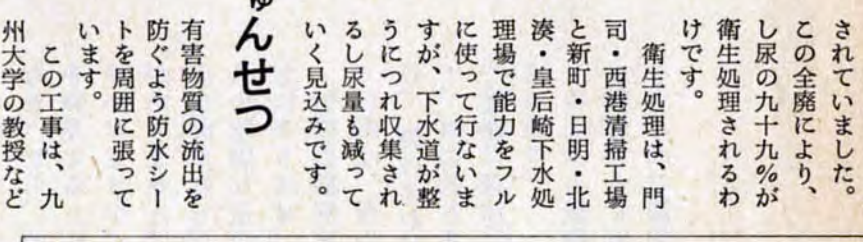 されていました。
この全廃により、
し尿の九十九%が
衛生処理されるわ
けです。
衛生処理は、門
司・西港清掃工場
と新町・日明・北
湊・皇后崎下水処
理場で能力をフル
に使って行ないま
すが、下水道が整
うにつれ収集され
るし尿量も減って
いく見込みです。
んせつ
有害物質の流出を
防ぐよう防水シー
トを周囲に張って
います。
この工事は、九
州大学の教授など